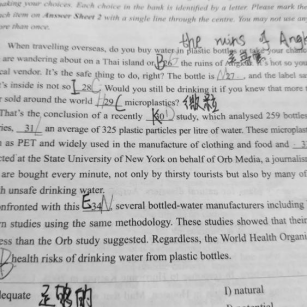 making your choices. Each choice in the bank is identified by a letter. Please mark the
each item on Answer Sheet 2 with a single line through the centre. You may not use an
ore than once.
the ruins of Angk
When travelling overseas, do you buy water in plastic bottles or take your chanc
are wandering about on a Thai island or 26 the ruins of
hot so you
cal vendor. It's the safe thing to do, right? The bottle is 27 , and the label sa
t's inside is not so 28 . Would you still be drinking it if you knew that more t
sold around the world 29 microplastics? 微粒
That's the conclusion of a recently 30 study, which analysed 259 bottles
ries, 31 an average of 325 plastic particles per litre of water. These microplas
as PET and widely used in the manufacture of clothing and food and
cted at the State University of New York on behalf of Orb Media, a journalis
are bought every minute, not only by thirsty tourists but also by many of
h unsafe drinking water.
onfronted with this E 34 , several bottled-water manufacturers including
n studies using the same methodology. These studies showed that their
ess than the Orb study suggested. Regardless, the World Health Organi
health risks of drinking water from plastic bottles.
equate 足够的
I) natural